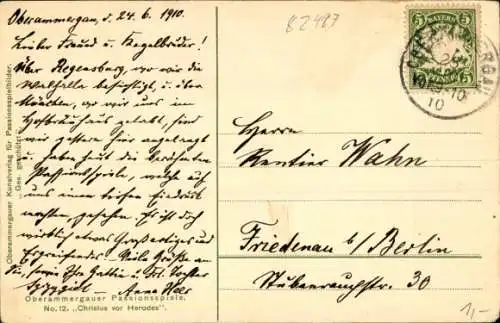 Oberammergau, d. 24.6.1910.
Lieber Freund u. Kegelbruder!
Über Regensburg, wo wir die
Walhalla besichtigt, u. über
München, wo wir uns im
Hofbräuhaus gelabt, sind
wir gestern hier angelangt
u. haben heut die berühmten
Passionsspiele, welche auf
uns einen tiefen Eindruck
machten, gesehen. Es ist doch
wirklich etwas Großartiges und
Ergreifendes. Viele Grüße an
Sie, sowie Ihre Gattin u. Frl. Tochter
Anna
Oberammergauer Passionsspiele.
No. 12. „Christus vor Herodes“.
Oberammergauer Kunstverlag für Passionsspielbilder.
Ges. geschützt.
82487
5 BAYERN 5
10
Herrn
Rentier Wahn
Friedenau b/Berlin
Stubenrauchstr. 30
1,-